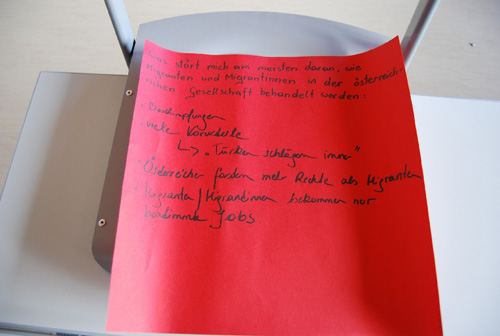 Was stört mich am meisten daran, wie
Migranten und Migrantinnen in der österreich-
ischen Gesellschaft behandelt werden:
• Beschimpfungen
• viele Vorurteile
↳ „Türken schlägern immer"
• Österreicher fordern mehr Rechte als Migranten
• Migranten / Migrantinnen bekommen nur
bestimmte Jobs